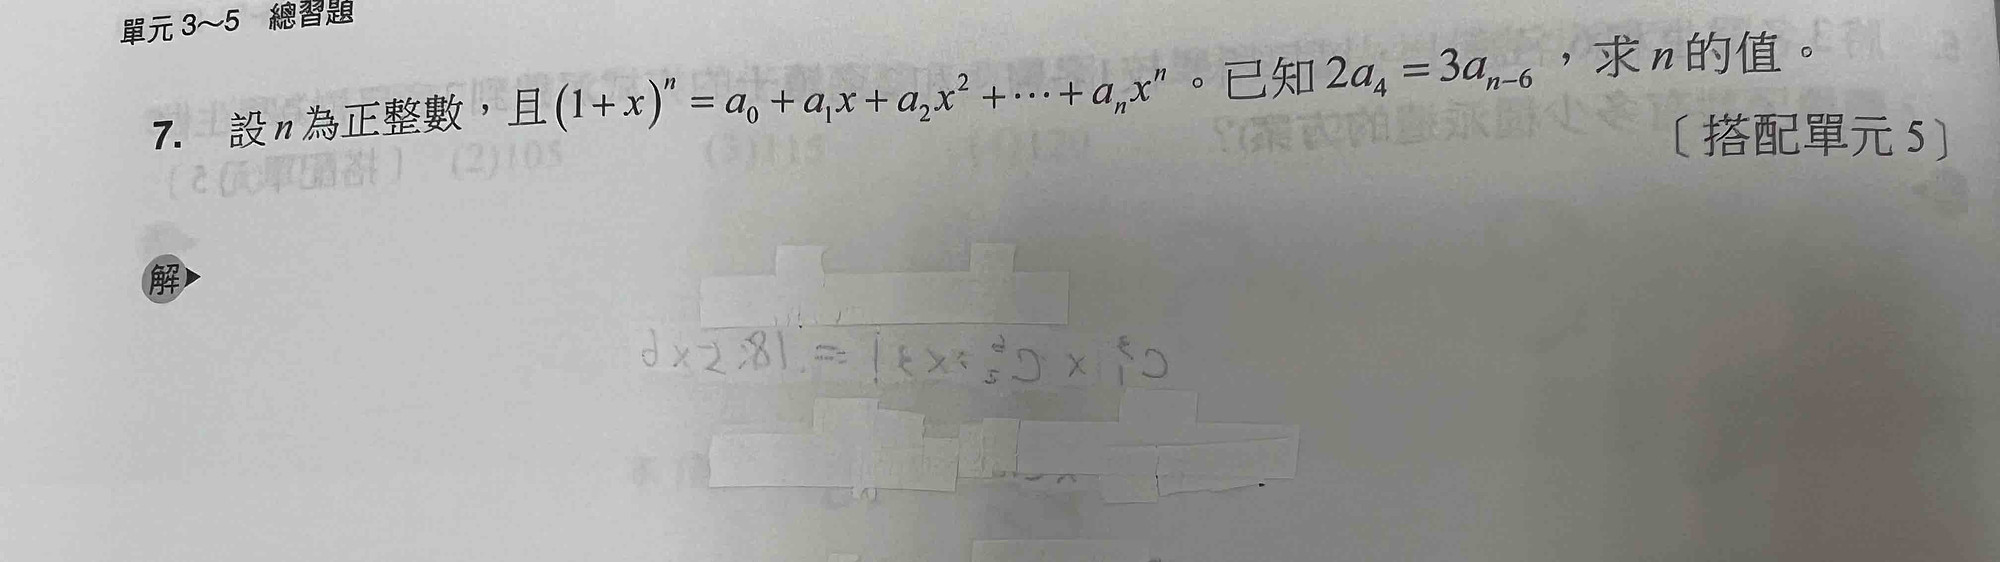 單元 3～5 總習題
7. 設 n 為正整數，且 (1+x)^n = a_0 + a_1x + a_2x^2 + ⋯ + a_nx^n 。已知 2a_4 = 3a_{n-6} ，求 n 的值。
〔搭配單元 5〕
解